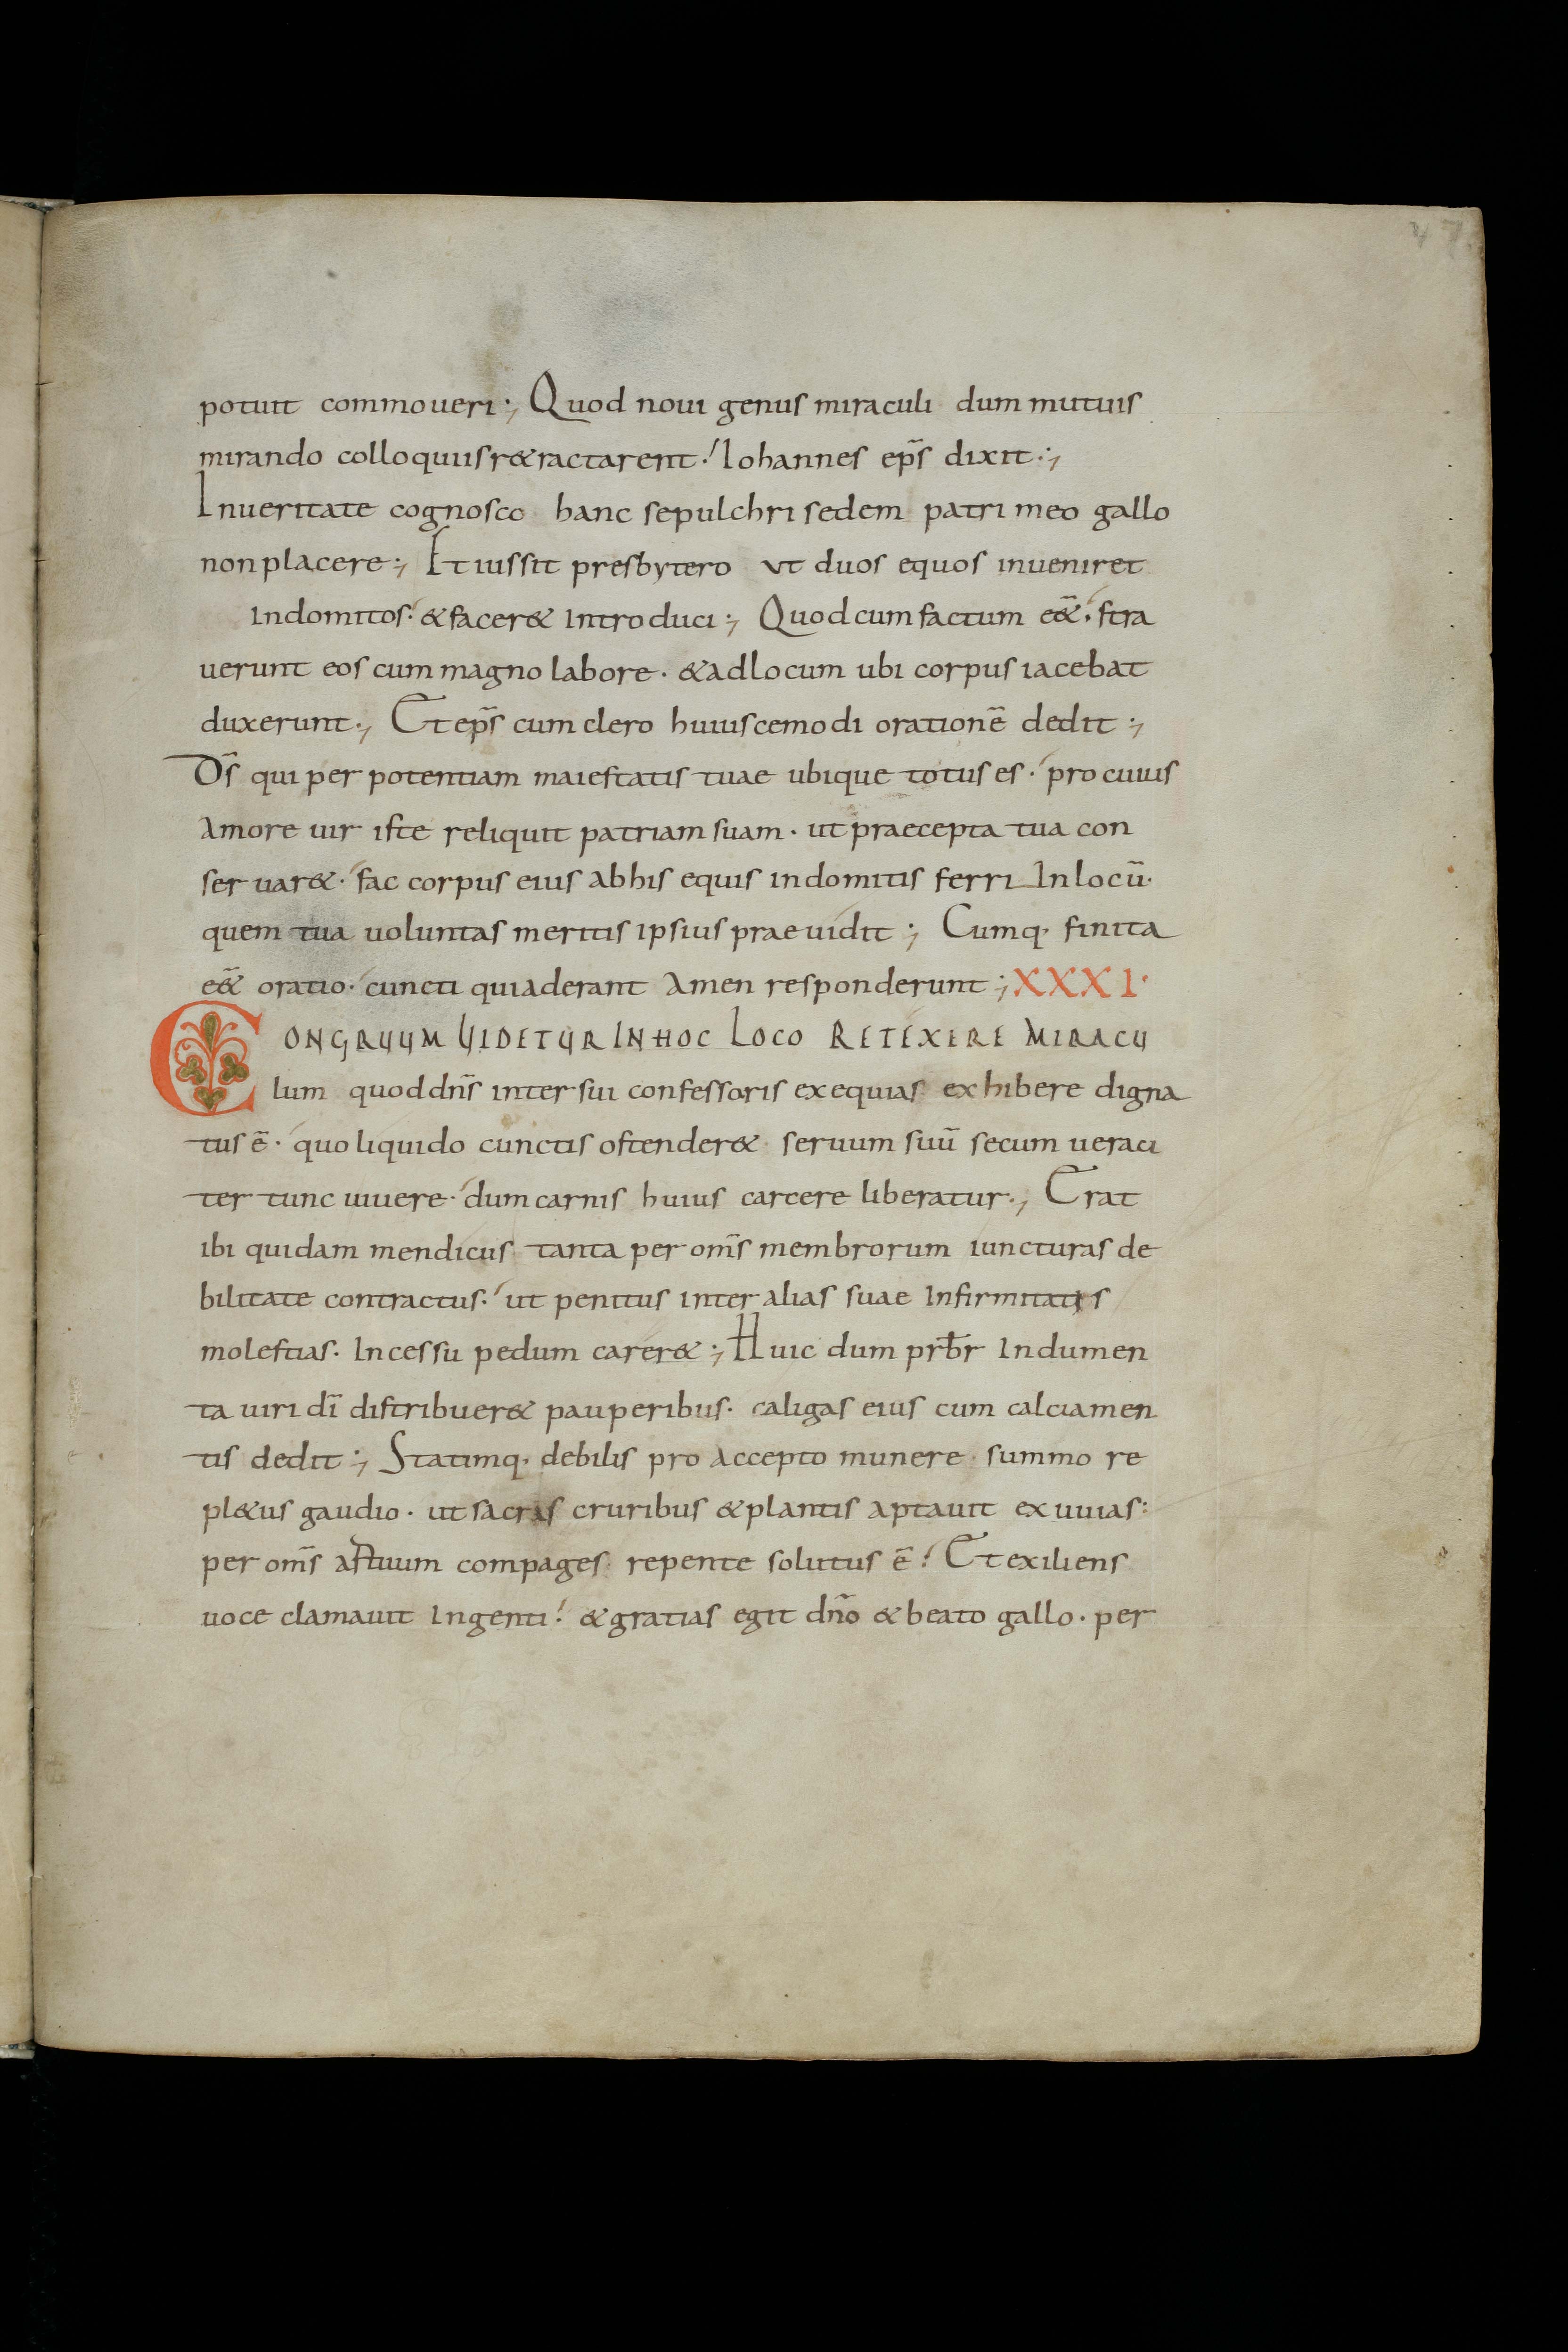 47
potuit commoueri ; Quod noui genus miraculi dum mutuis
mirando colloquiis r&ractarent · Iohannes ep̃s dixit ;
Inueritate cognosco hanc sepulchri sedem patri meo gallo
non placere ; Et iussit presbytero ut duos equos inueniret
Indomitos · & facer& Introduci ; Quod cum factum e&̃ · stra
uerunt eos cum magno labore · & ad locum ubi corpus iacebat
duxerunt ; Et ep̃s cum clero huiuscemodi orationẽ dedit ;
Ds̃ qui per potentiam maiestatis tuae ubique totus es · pro cuius
Amore uir iste reliquit patriam suam · ut praecepta tua con
seruar& · fac corpus eius ab his equis indomitis ferri In locũ ·
quem tua uoluntas meritis ipsius praeuidit ; Cumq· finita
e&̃ oratio · cuncti qui aderant Amen responderunt ; XXXI ·
CONGRUUM UIDETUR IN HOC LOCO RETEXERE MIRACU
lum quod dñs inter sui confessoris exequias exhibere digna
tus ẽ · quo liquido cunctis ostender& seruum suũ secum ueraci
ter tunc uiuere · dum carnis huius carcere liberatur ; Erat
ibi quidam mendicus tanta per om̃s membrorum iuncturas de
bilitate contractus · ut penitus inter alias suae Infirmitatis
molestias · Incessu pedum carer& ; Huic dum prb̃r Indumen
ta uiri dĩ distribuer& pauperibus · caligas eius cum calciamen
tis dedit ; Statimq· debilis pro Accepto munere · summo re
pl&us gaudio · ut sacras cruribus & plantis aptauit exuuias :
per om̃s artuum compages repente solutus ẽ · Et exiliens
uoce clamauit Ingenti · & gratias egit dño & beato gallo · per